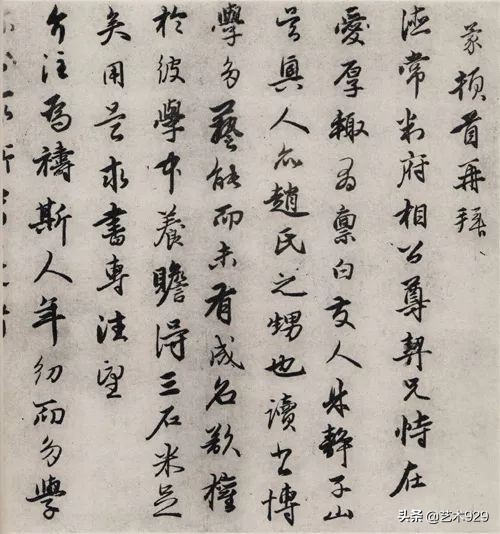 蒙頓首再拜
德常判府相公尊契兄恃在
愛厚輒為稟白友人林靜子山
吳興人亦趙氏之甥也讀書博
學多藝能而未有成名欲權
於彼學中養贍得三石米足
矣用是求書專注望
介注為禱斯人年幼而多學
头条 @艺术929